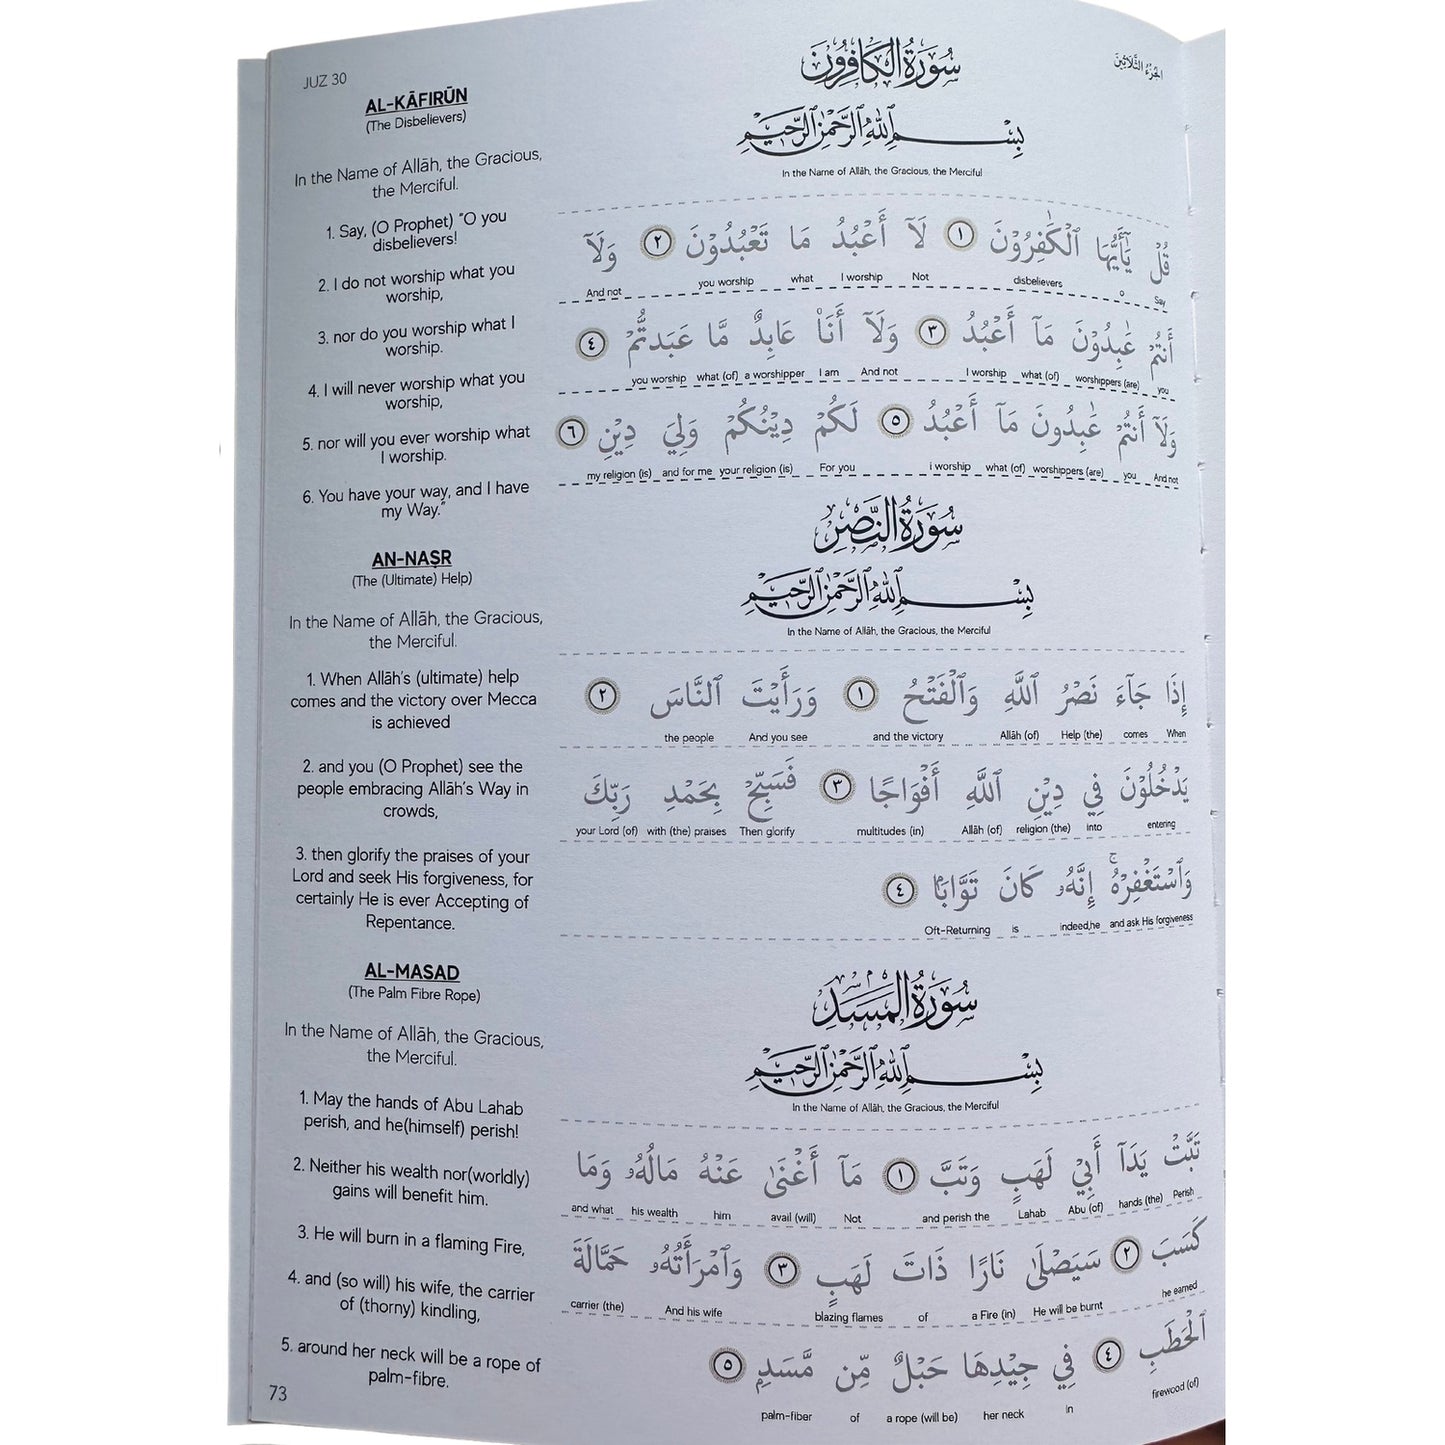 JUZ 30
AL-KĀFIRŪN
(The Disbelievers)
In the Name of Allāh, the Gracious,
the Merciful.
1. Say, (O Prophet) "O you
disbelievers!
2. I do not worship what you
worship,
3. nor do you worship what I
worship.
4. I will never worship what you
worship,
5. nor will you ever worship what
I worship.
6. You have your way, and I have
my Way."
AN-NAṢR
(The (Ultimate) Help)
In the Name of Allāh, the Gracious,
the Merciful.
1. When Allāh's (ultimate) help
comes and the victory over Mecca
is achieved
2. and you (O Prophet) see the
people embracing Allāh's Way in
crowds,
3. then glorify the praises of your
Lord and seek His forgiveness, for
certainly He is ever Accepting of
Repentance.
AL-MASAD
(The Palm Fibre Rope)
In the Name of Allāh, the Gracious,
the Merciful.
1. May the hands of Abu Lahab
perish, and he(himself) perish!
2. Neither his wealth nor(worldly)
gains will benefit him.
3. He will burn in a flaming Fire,
4. and (so will) his wife, the carrier
of (thorny) kindling,
5. around her neck will be a rope of
palm-fibre.
73
الجُزءُ الثَّلَاثِينَ
سُورَةُ الكَافِرُون
بِسْمِ ٱللهِ ٱلرَّحْمٰنِ ٱلرَّحِيْمِ
In the Name of Allāh, the Gracious, the Merciful
قُلْ يَٰٓأَيُّهَا ٱلْكَٰفِرُوْنَ ١ لَآ أَعْبُدُ مَا تَعْبُدُوْنَ ٢ وَلَآ
And not you worship what I worship Not disbelievers O Say
أَنتُمْ عَٰبِدُوْنَ مَآ أَعْبُدُ ٣ وَلَآ أَنَا۠ عَابِدٌ مَّا عَبَدتُّمْ ٤
you worship what (of) a worshipper I am And not I worship what (of) worshippers (are) you
وَلَآ أَنتُمْ عَٰبِدُونَ مَآ أَعْبُدُ ٥ لَكُمْ دِيْنُكُمْ وَلِيَ دِيْنِ ٦
my religion (is) and for me your religion (is) For you i worship what (of) worshippers (are) you And not
سُورَةُ النَّصْرِ
بِسْمِ ٱللهِ ٱلرَّحْمٰنِ ٱلرَّحِيْمِ
In the Name of Allāh, the Gracious, the Merciful
إِذَا جَآءَ نَصْرُ ٱللَّهِ وَٱلْفَتْحُ ١ وَرَأَيْتَ ٱلنَّاسَ ٢
the people And you see and the victory Allāh (of) Help (the) comes When
يَدْخُلُوْنَ فِي دِيْنِ ٱللَّهِ أَفْوَاجًا ٣ فَسَبِّحْ بِحَمْدِ رَبِّكَ
your Lord (of) with (the) praises Then glorify multitudes (in) Allāh (of) religion (the) into entering
وَٱسْتَغْفِرْهُ ۚ إِنَّهُۥ كَانَ تَوَّابَۢا ٤
Oft-Returning is indeed,he and ask His forgiveness
سُورَةُ المَسَدِ
بِسْمِ ٱللهِ ٱلرَّحْمٰنِ ٱلرَّحِيْمِ
In the Name of Allāh, the Gracious, the Merciful
تَبَّتْ يَدَآ أَبِيْ لَهَبٍ وَتَبَّ ١ مَآ أَغْنَىٰ عَنْهُ مَالُهُۥ وَمَا
and what his wealth him avail (will) Not and perish the Lahab Abu (of) hands (the) Perish
كَسَبَ ٢ سَيَصْلَىٰ نَارًا ذَاتَ لَهَبٍ ٣ وَٱمْرَأَتُهُۥ حَمَّالَةَ
carrier (the) And his wife blazing flames of a Fire (in) He will be burnt he earned
ٱلْحَطَبِ ٤ فِي جِيْدِهَا حَبْلٌ مِّن مَّسَدٍۭ ٥
palm-fiber of a rope (will be) her neck in firewood (of)